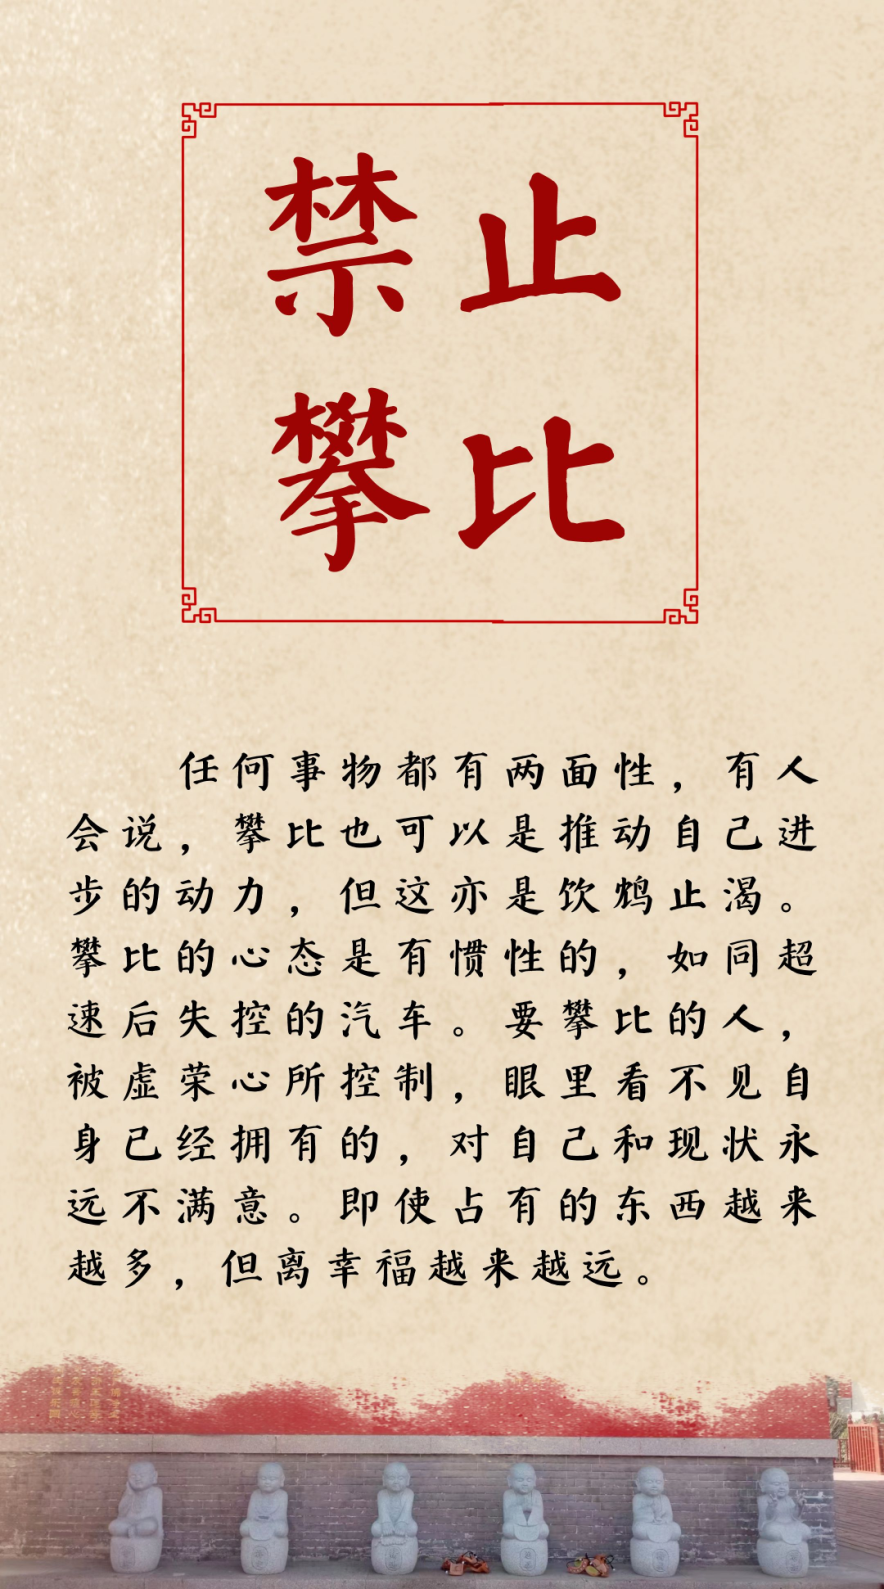 禁止
攀比
任何事物都有两面性，有人
会说，攀比也可以是推动自己进
步的动力，但这亦是饮鸩止渴。
攀比的心态是有惯性的，如同超
速后失控的汽车。要攀比的人，
被虚荣心所控制，眼里看不见自
身已经拥有的，对自己和现状永
远不满意。即使占有的东西越来
越多，但离幸福越来越远。